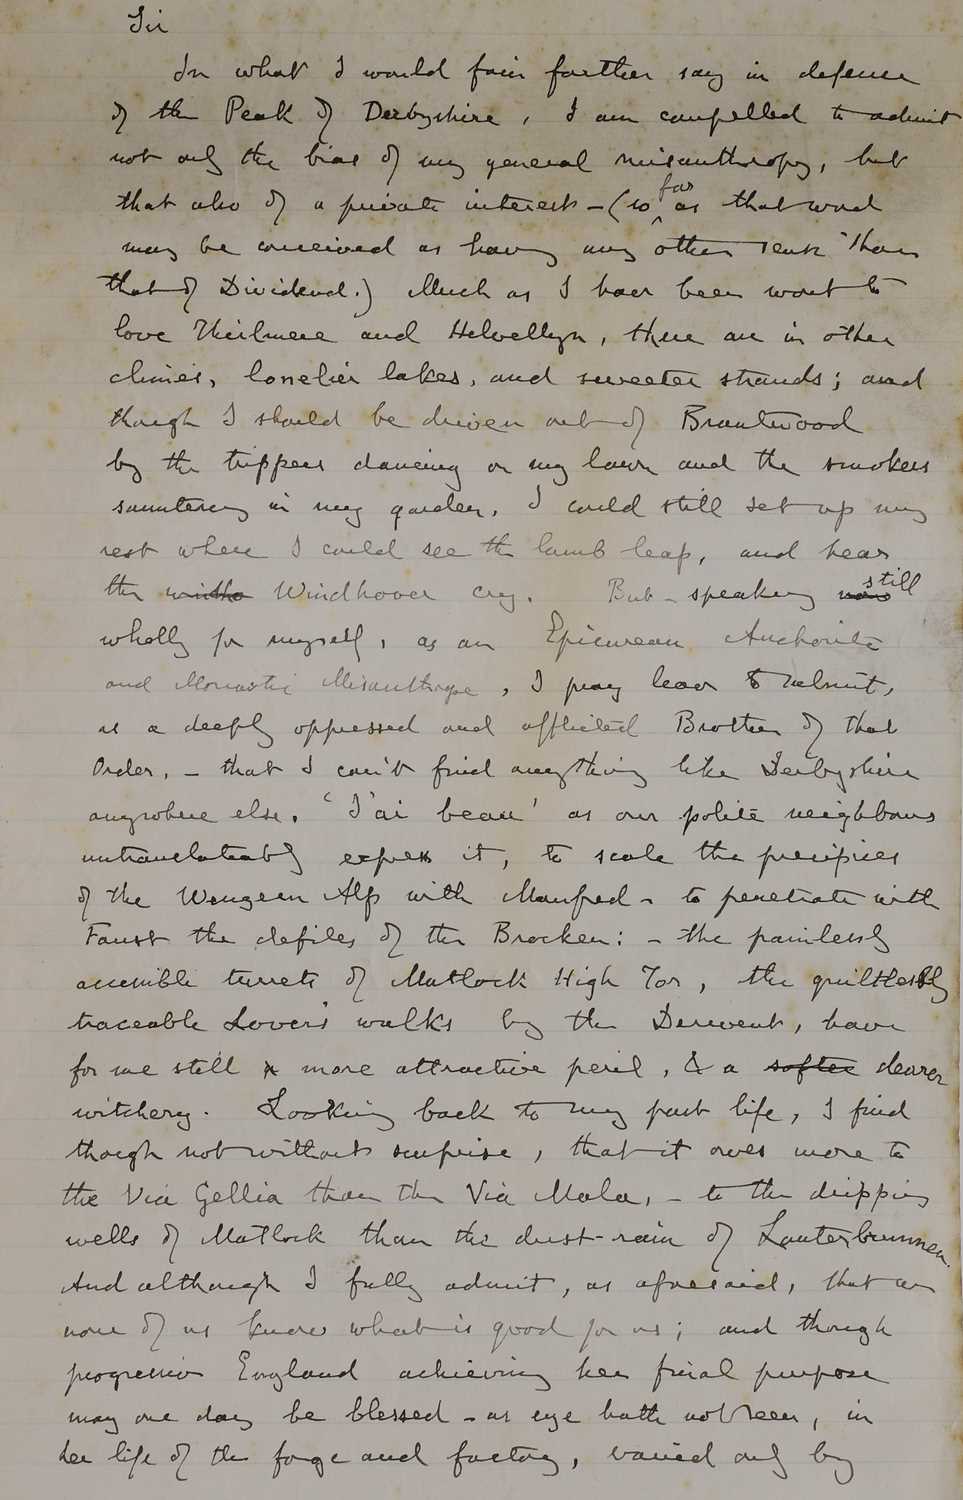 Sir
In what I would fain farther say in defence
of the Peak of Derbyshire, I am compelled to admit
not only the bias of my general misanthropy, but
that also of a private interest - (so far as that word
may be conceived as having any other sense than
that of Dividend.) Much as I have been wont to
love Thirlmere and Helvellyn, there are in other
climes, lonelier lakes, and sweeter strands; and
though I should be driven out of Brantwood
by the trippers dancing on my lawn and the smokers
sauntering in my garden, I could still set up my
rest where I could see the lamb leap, and hear
the windho Windhover cry. But - speaking now still
wholly for myself, as an Epicurean Anchorite
and Monastic Misanthrope, I pray leave to submit,
as a deeply oppressed and afflicted Brother of that
Order, - that I can't find anything like Derbyshire
anywhere else. 'J'ai beau' as our polite neighbours
untranslateably express it, to scale the precipices
of the Wengern Alp with Manfred - to penetrate with
Faust the defiles of the Brocken: - the painlessly
accessible turrets of Matlock High Tor, the guiltlessly
traceable Lovers' walks by the Derwent, have
for me still a more attractive peril, & a softer dearer
witchery. Looking back to my past life, I find
though not without surprise, that it owes more to
the Via Gellia than the Via Mala, - to the dripping
wells of Matlock than the dust-rain of Lauterbrunnen.
And although I fully admit, as aforesaid, that we
none of us know what is good for us; and though
progressive England achieving her final purpose
may one day be blessed - as eye hath not seen, in
her life of the forge and factory, varied only by